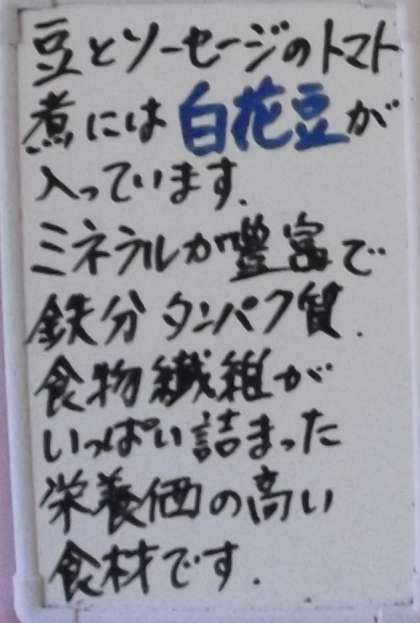 豆とソーセージのトマト
煮には白花豆が
入っています.
ミネラルが豊富で
鉄分タンパク質.
食物繊維が
いっぱい詰まった
栄養価の高い
食材です.